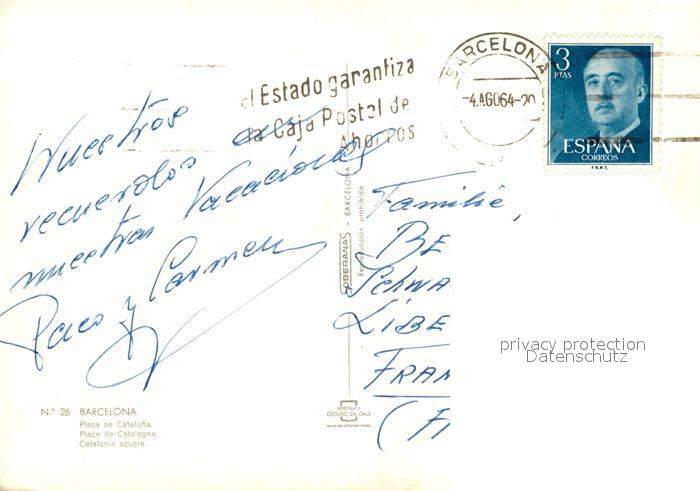 BARCELONA
-4.AGO64-20
el Estado garantiza
la Caja Postal de
Ahorros
3
PTAS
ESPAÑA
CORREOS
F.N.M.T.
Nuestros
recuerdos en
nuestras Vacaciones
Paco y Carmen
SOBERANAS - BARCELONA
Reproducción prohibida
Familie,
BE
Schwa
LIBE
FRAN
(F
privacy protection
Datenschutz
POSTALES
ESCUDO DE ORO
N.º 26 BARCELONA.
Plaza de Cataluña.
Place de Catalogne.
Catalonia square.